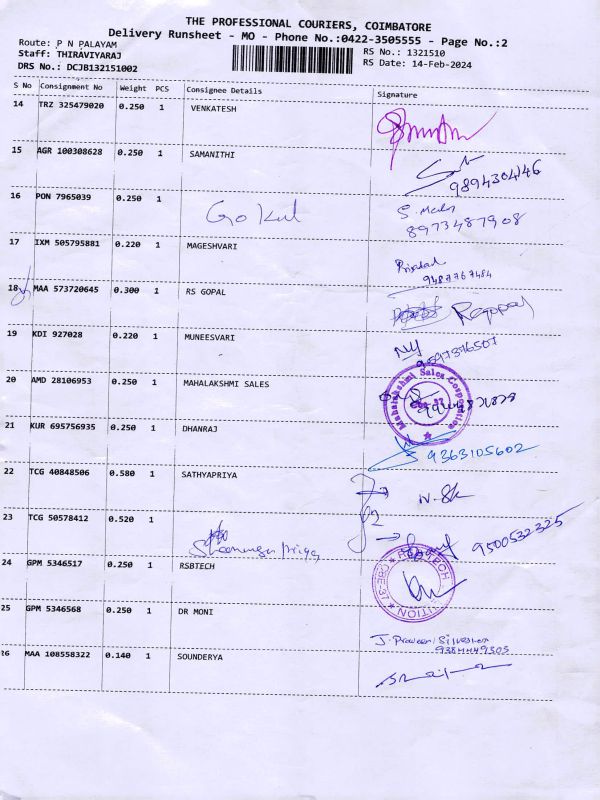 THE PROFESSIONAL COURIERS, COIMBATORE
Delivery Runsheet - MO - Phone No.:0422-3505555 - Page No.:2
Route: P N PALAYAM
Staff: THIRAVIYARAJ
DRS No.: DCJB132151002
RS No.: 1321510
RS Date: 14-Feb-2024
S No Consignment No Weight PCS Consignee Details Signature
14 TRZ 325479020 0.250 1 VENKATESH
15 AGR 100308628 0.250 1 SAMANITHI
9894304146
16 PON 7965039 0.250 1 Gokul
8973487908
17 IXM 505795881 0.220 1 MAGESHVARI
9487767484
18 MAA 573720645 0.300 1 RS GOPAL
19 KDI 927028 0.220 1 MUNEESVARI
9597376507
20 AMD 28106953 0.250 1 MAHALAKSHMI SALES
Mahalakshmi Sales Corporation
21 KUR 695756935 0.250 1 DHANRAJ
9363105602
22 TCG 40848506 0.580 1 SATHYAPRIYA
23 TCG 50578412 0.520 1
9500532325
24 GPM 5346517 0.250 1 RSBTECH
25 GPM 5346568 0.250 1 DR MONI
J. Praveen
26 MAA 108558322 0.140 1 SOUNDERYA